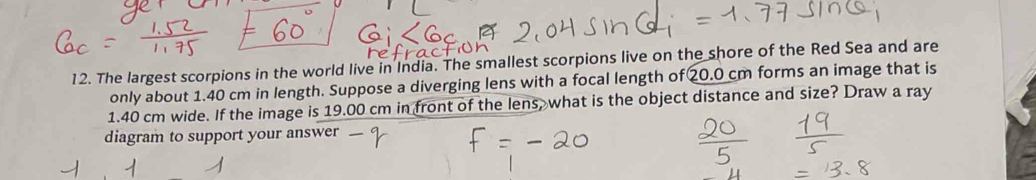 θc = 1.52 / 1.75 = 60° θi < θc refraction 2.04 sin θi = 1.77 sin θi
12. The largest scorpions in the world live in India. The smallest scorpions live on the shore of the Red Sea and are
only about 1.40 cm in length. Suppose a diverging lens with a focal length of 20.0 cm forms an image that is
1.40 cm wide. If the image is 19.00 cm in front of the lens, what is the object distance and size? Draw a ray
diagram to support your answer – q f = -20 20/5 19/5
= 13.8